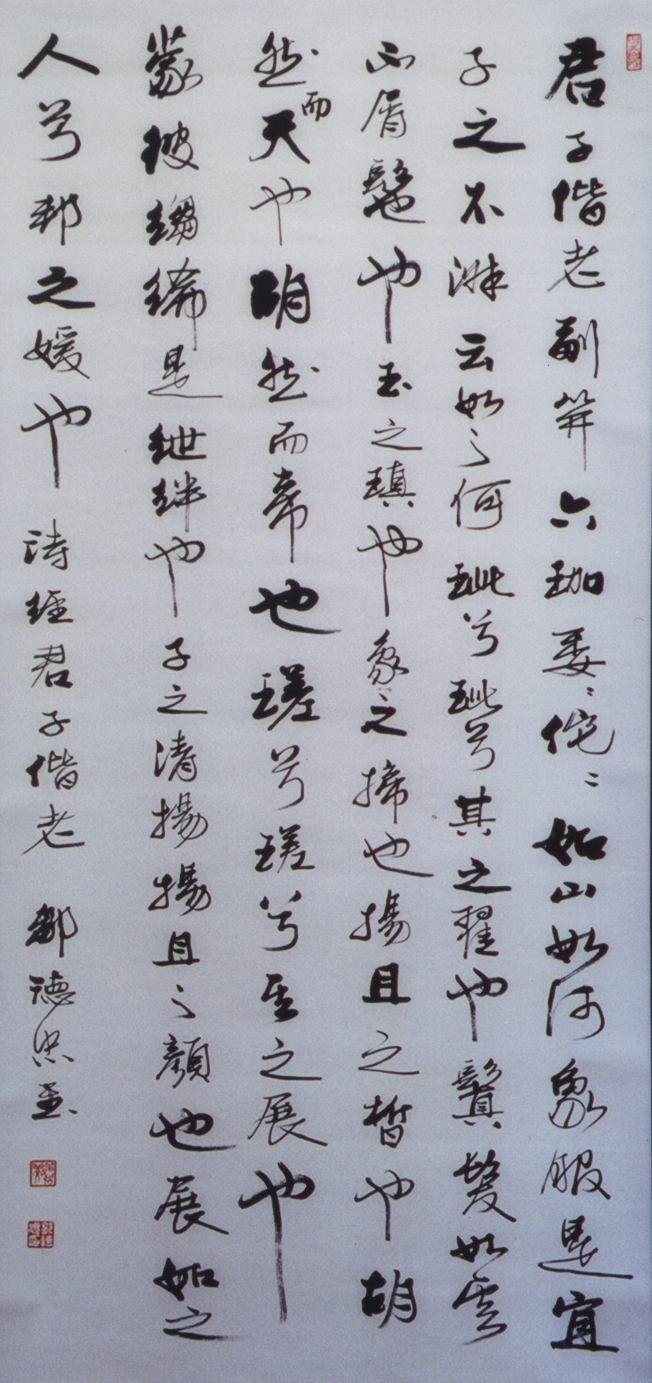 君子偕老副笄六珈委〻佗〻如山如河象服是宜
子之不淑云如之何玼兮玼兮其之翟也鬒髮如雲
不屑髢也玉之瑱也象之揥也揚且之皙也胡
然而天也胡然而帝也瑳兮瑳兮其之展也
蒙彼縐絺是紲袢也子之清揚揚且之顏也展如之
人兮邦之媛也 诗經君子偕老 鄒德忠書